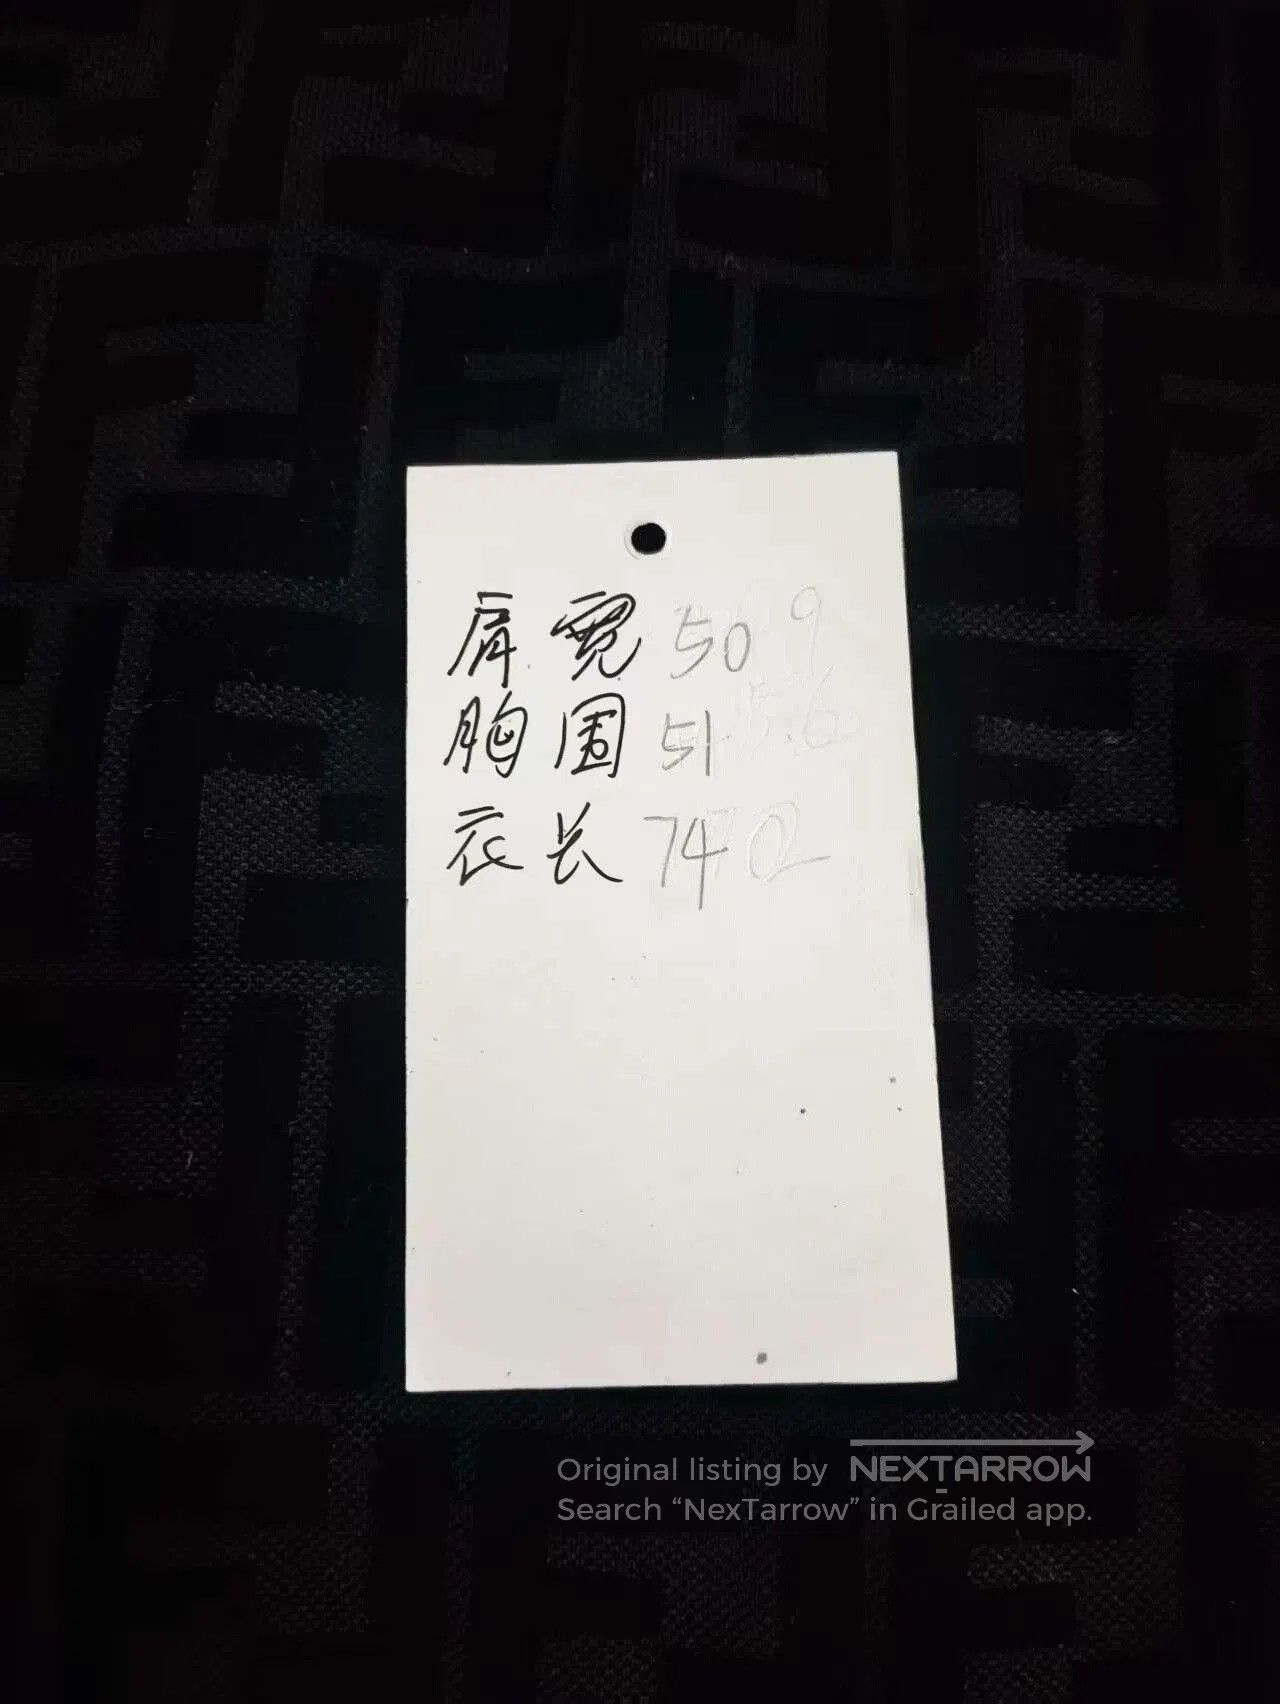 肩宽 50
胸围 51
衣长 74
Original listing by NEXTARROW
Search “NexTarrow” in Grailed app.